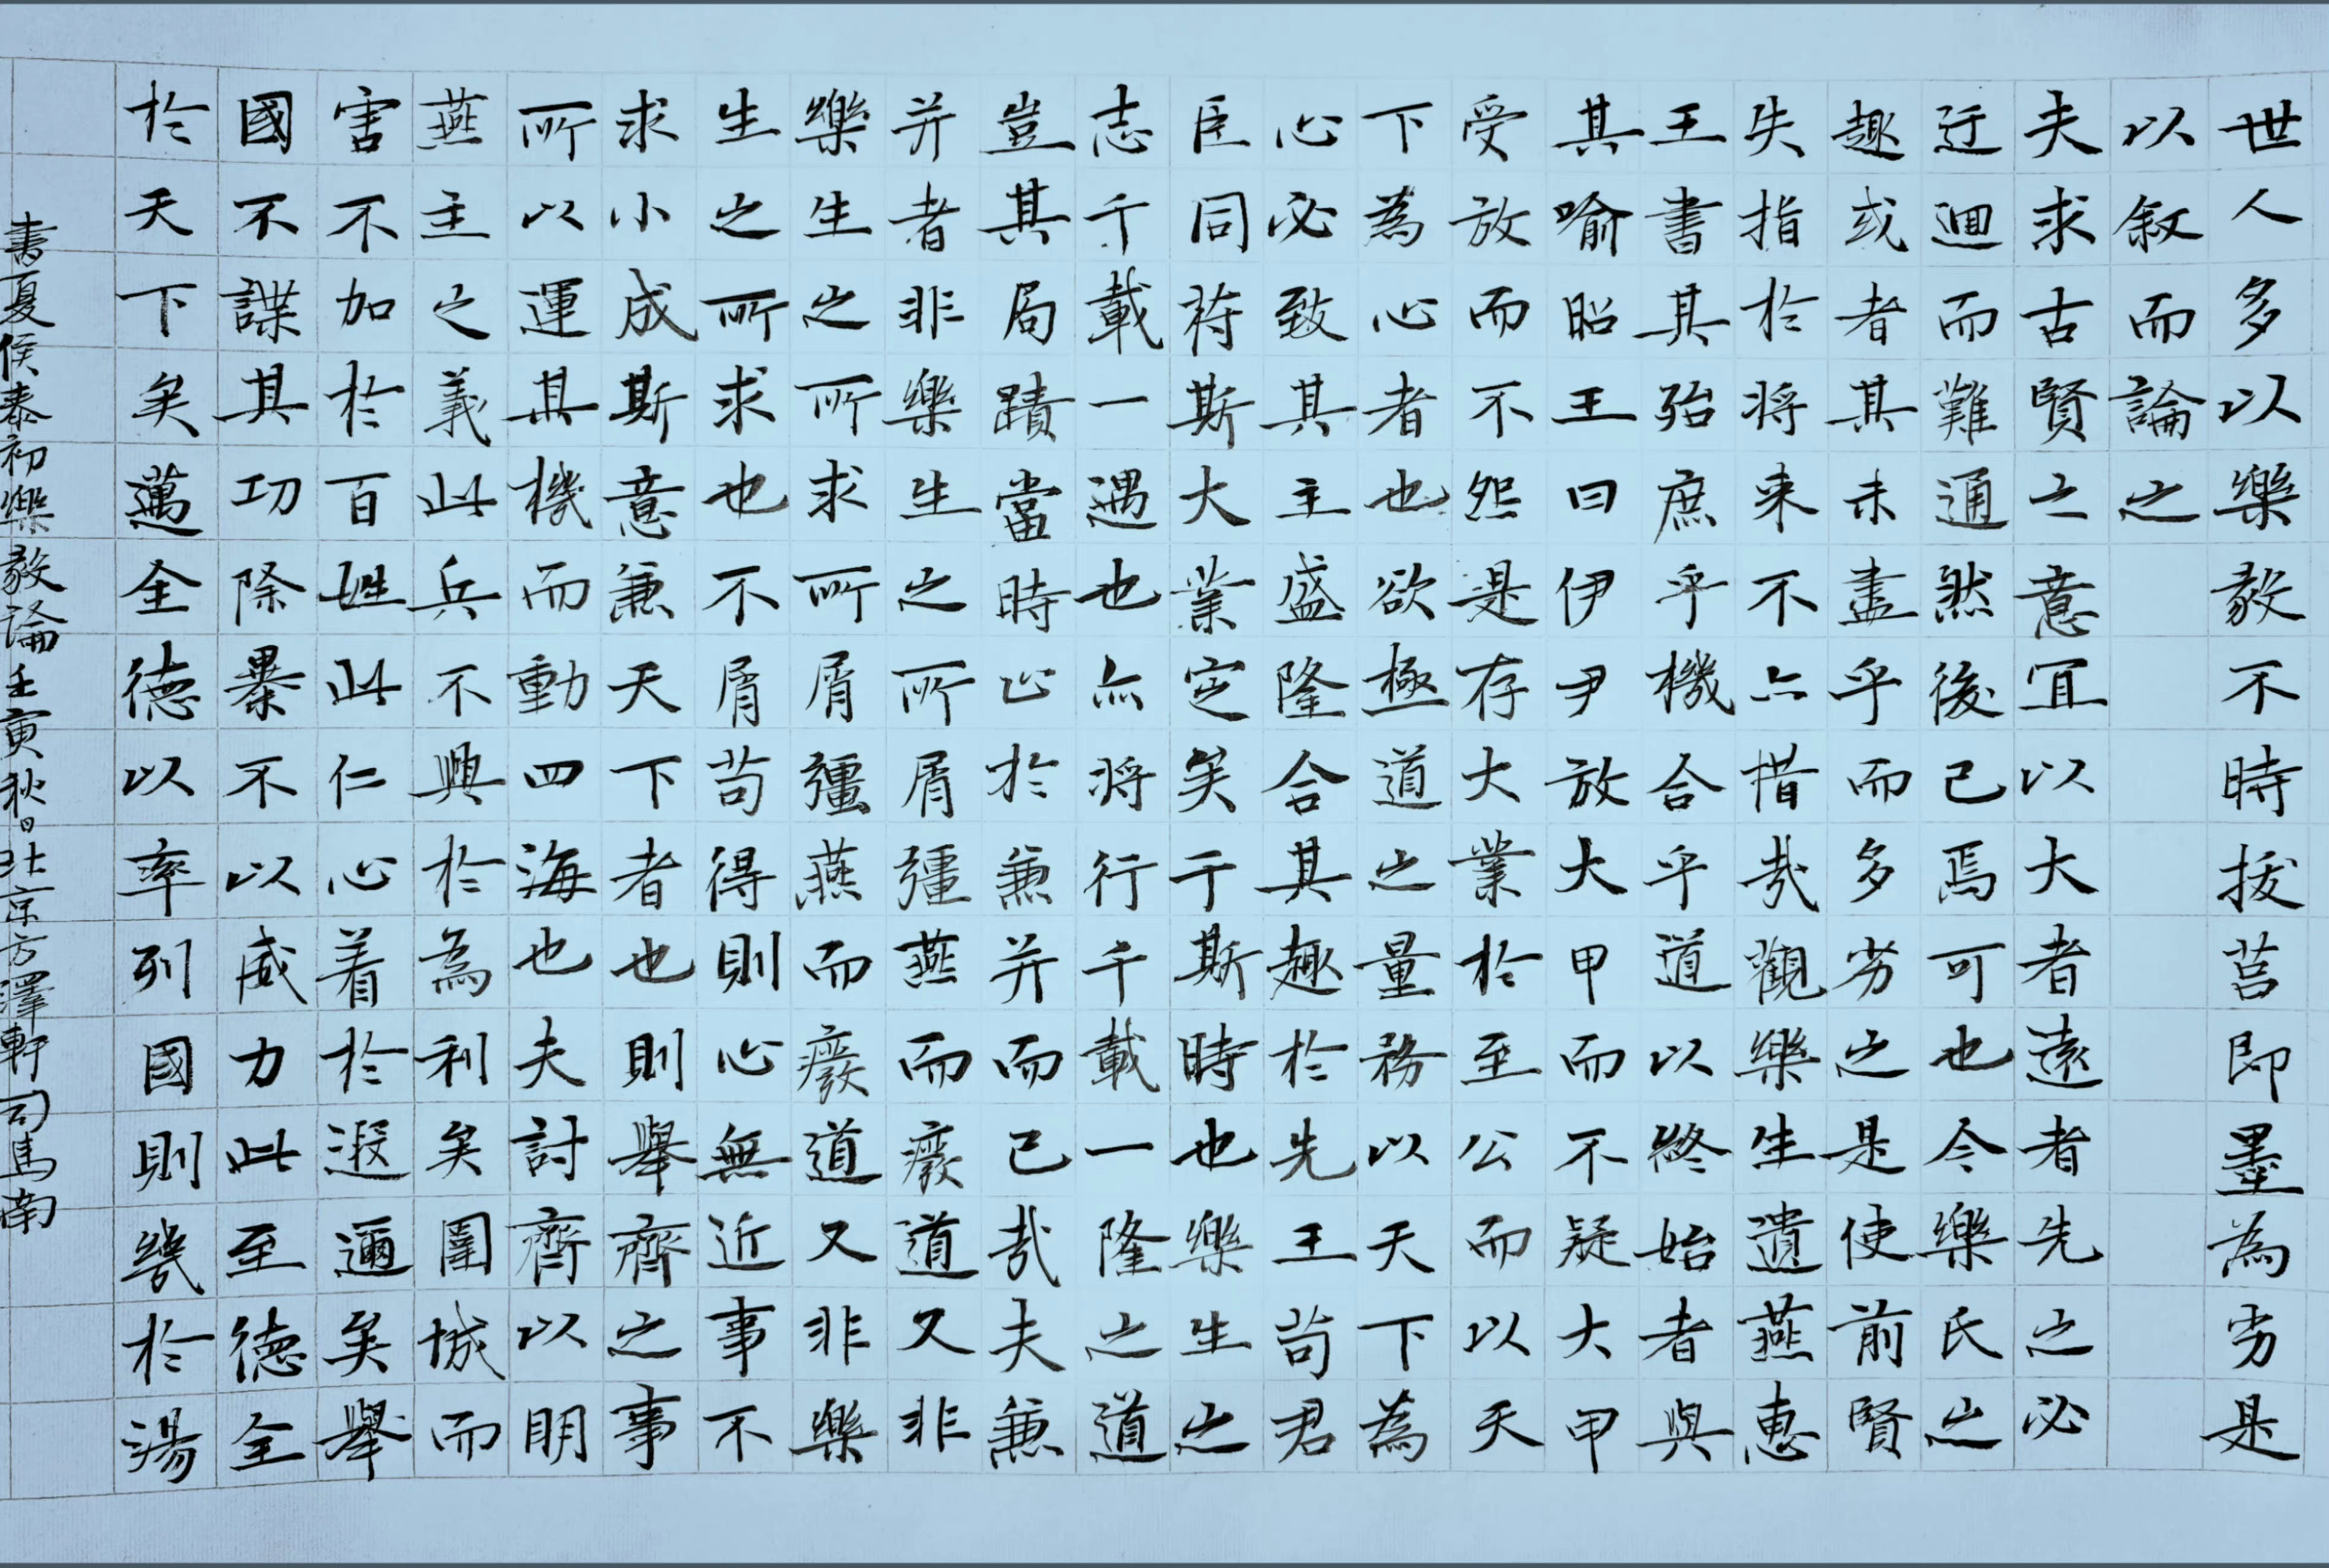 世人多以樂毅不時拔莒即墨為劣是
以叙而論之
夫求古賢之意宜以大者遠者先之必
迂迴而難通然後已焉可也今樂氏之
趣或者其未盡乎而多劣之是使前賢
失指於将来不亦惜哉觀樂生遺燕惠
王書其殆庶乎機合乎道以終始者與
其喻昭王曰伊尹放大甲而不疑大甲
受放而不怨是存大業於至公而以天
下為心者也欲極道之量務以天下為
心必致其主盛隆合其趣於先王苟君
臣同符斯大業定矣于斯時也樂生之
志千載一遇也亦将行千載一隆之道
豈其局蹟當時止於兼并而已哉夫兼
并者非樂生之所屑彊燕而廢道又非
樂生之所求所屑彊燕而廢道又非樂
生之所求也不屑苟得則心無近事不
求小成斯意兼天下者也則舉齊之事
所以運其機而動四海也夫討齊以明
燕主之義此兵不興於為利矣圍城而
害不加於百姓此仁心着於遐邇矣舉
國不謀其功除暴不以威力此至德全
於天下矣邁全德以率列國則幾於湯
書夏侯泰初樂毅論壬寅秋日北京方澤軒司馬南